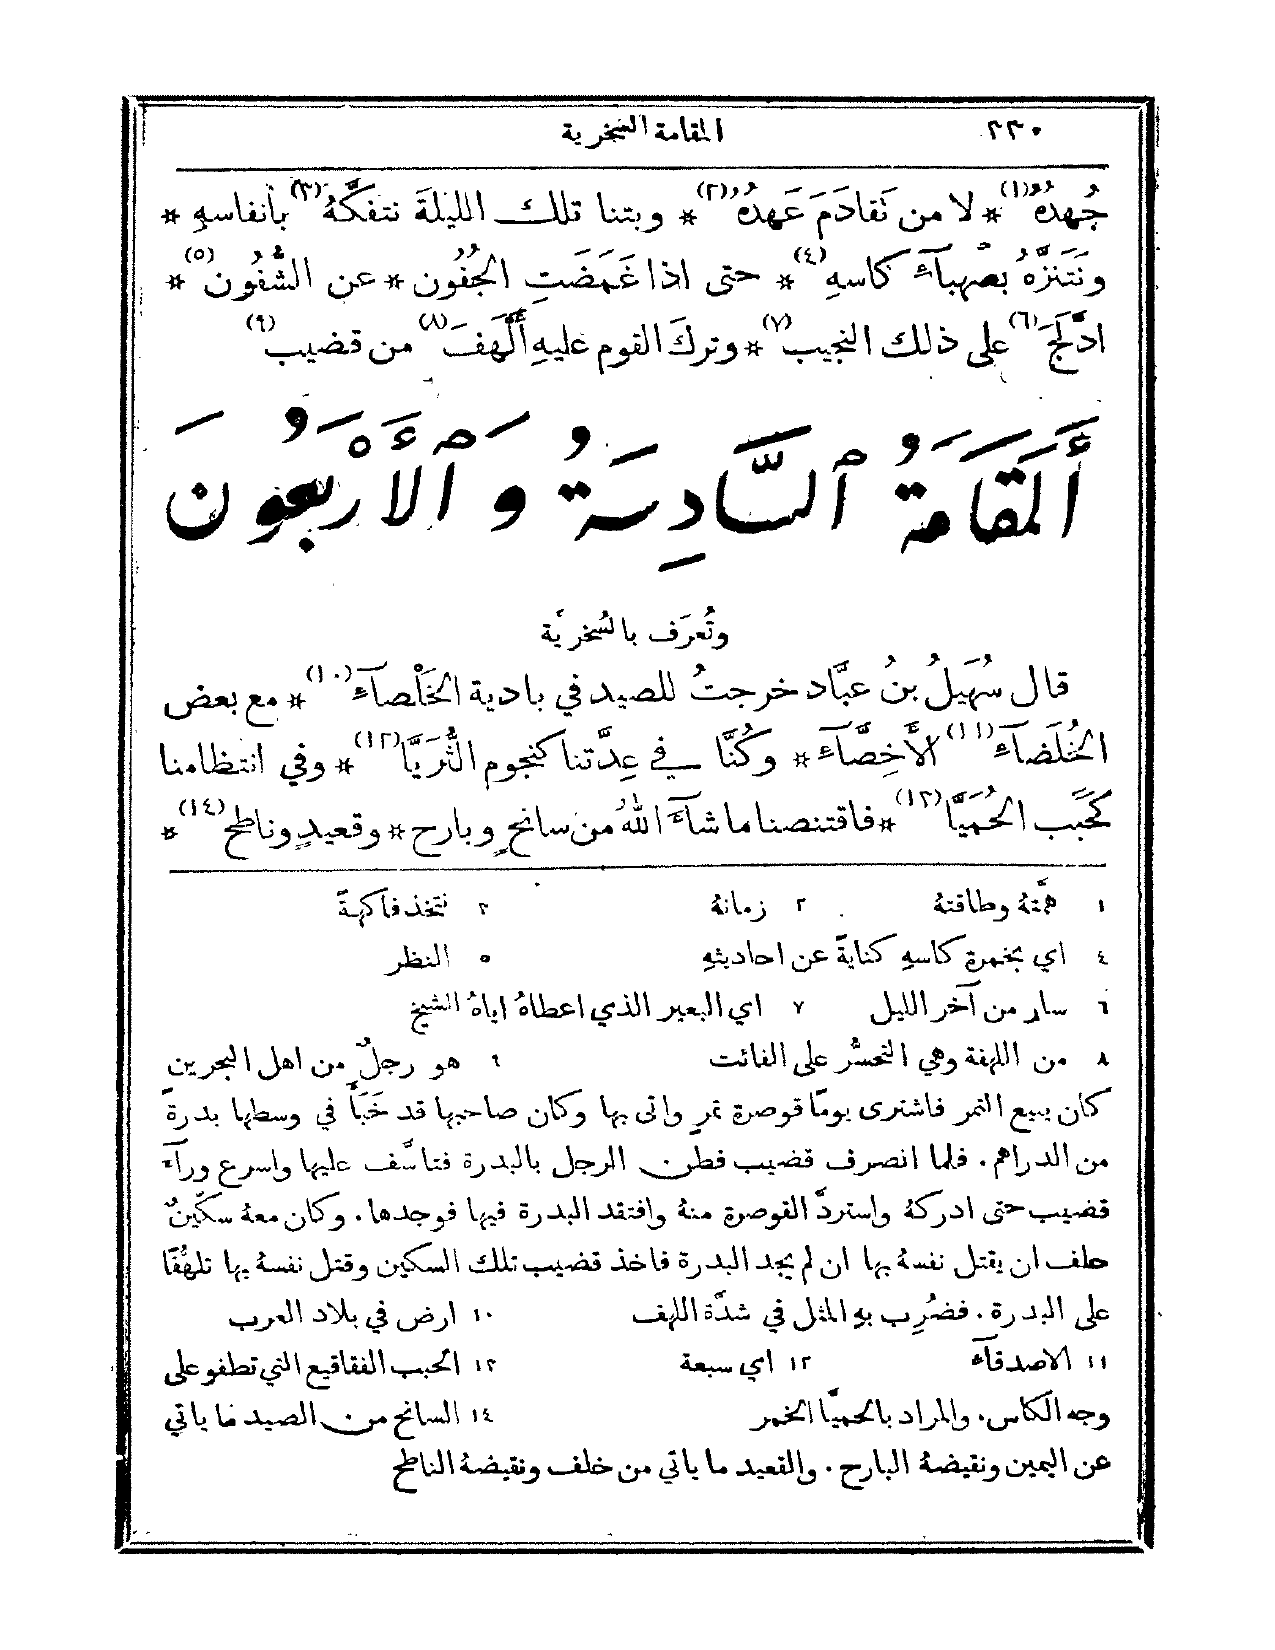 ٣٣٠ المقامة السخرية
جُهدهُ(١) * لا من تَقادَمَ عَهدهُ(٢) * وبتنا تلك الليلةَ نتفكَّهُ(٣) بأنفاسهِ *
ونَتَنزَّهُ بصَهباءِ كاسهِ(٤) * حتى اذا غَمَضَتِ الجُفُون * عن الشُّفُون(٥) *
ادَّلَجَ(٦) على ذلك النجيب(٧) * وتركَ القوم عليهِ أَلْهَفَ(٨) من قضيب(٩)
أَلمَقَامَةُ ٱلسَّادِسَةُ وَٱلْأَرْبَعُونَ
وتُعرَف بالسُخريَّة
قال سُهَيلُ بنُ عبَّاد خرجتُ للصيد في بادية الخَلْصآءِ(١٠) * مع بعض
الخُلَصَآءِ(١١) الأَخِصَّآءِ * وكُنَّا في عِدَّتنا كنجوم الثُّرَيَّا(١٢) * وفي انتظامنا
كَحَبَب الحُمَيَّا(١٣) * فاقتنصنا ما شآءَ اللهُ من سانحٍ وبارح * وقعيدٍ وناطح(١٤) *
١ همَّتهُ وطاقتهُ ٢ زمانهُ ٣ نتَّخذ فاكهةً
٤ اي بخمرةِ كاسهِ كنايةً عن احاديثهِ ٥ النظر
٦ سار من آخر الليل ٧ اي البعير الذي اعطاهُ اياهُ الشيخ
٨ من اللهفة وهي التحسُّر على الفائت ٩ هو رجلٌ من اهل البحرين
كان يبيع التمر فاشترى يومًا قوصرة تمرٍ واتى بها وكان صاحبها قد خَبَأَ في وسطها بدرةً
من الدراهم . فلما انصرف قضيب فطن الرجل بالبدرة فتاسَّف عليها واسرع ورآءَ
قضيب حتى ادركهُ واستردَّ القوصرة منهُ وافتقد البدرة فيها فوجدها . وكان معهُ سكّينٌ
حلف ان يقتل نفسهُ بها ان لم يجد البدرة فاخذ قضيب تلك السكين وقتل نفسهُ بها تلهُّفًا
على البدرة . فضُرِب بهِ المثل في شدَّة اللهف ١٠ ارض في بلاد العرب
١١ الاصدقآءِ ١٢ اي سبعة ١٣ الحبب الفقاقيع التي تطفو على
وجه الكاس . والمراد بالحميَّا الخمر ١٤ السانح من الصيد ما ياتي
عن اليمين ونقيضهُ البارح . والقعيد ما ياتي من خلف ونقيضهُ الناطح